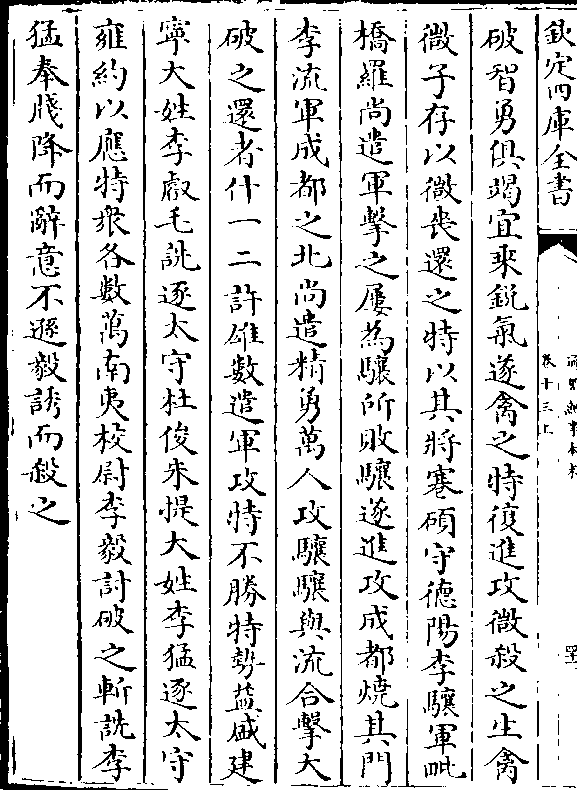 欽定四庫全書
通鑑紀事本末
卷十三上
破智勇俱竭宜乘鋭氣遂禽之特復進攻㣲殺之生禽
㣲子存以㣲喪還之特以其將蹇碩守德陽李驤軍毗
橋羅尚遣軍擊之屢為驤所敗驤遂進攻成都燒其門
李流軍成都之北尚遣精勇萬人攻驤驤與流合擊大
破之還者什一二許雄數遣軍攻特不勝特勢益盛建
寧大姓李叡毛詵逐太守杜俊朱提大姓李猛逐太守
雍約以應特衆各數萬南夷校尉李毅討破之斬詵李
猛奉牋降而辭意不遜毅誘而殺之